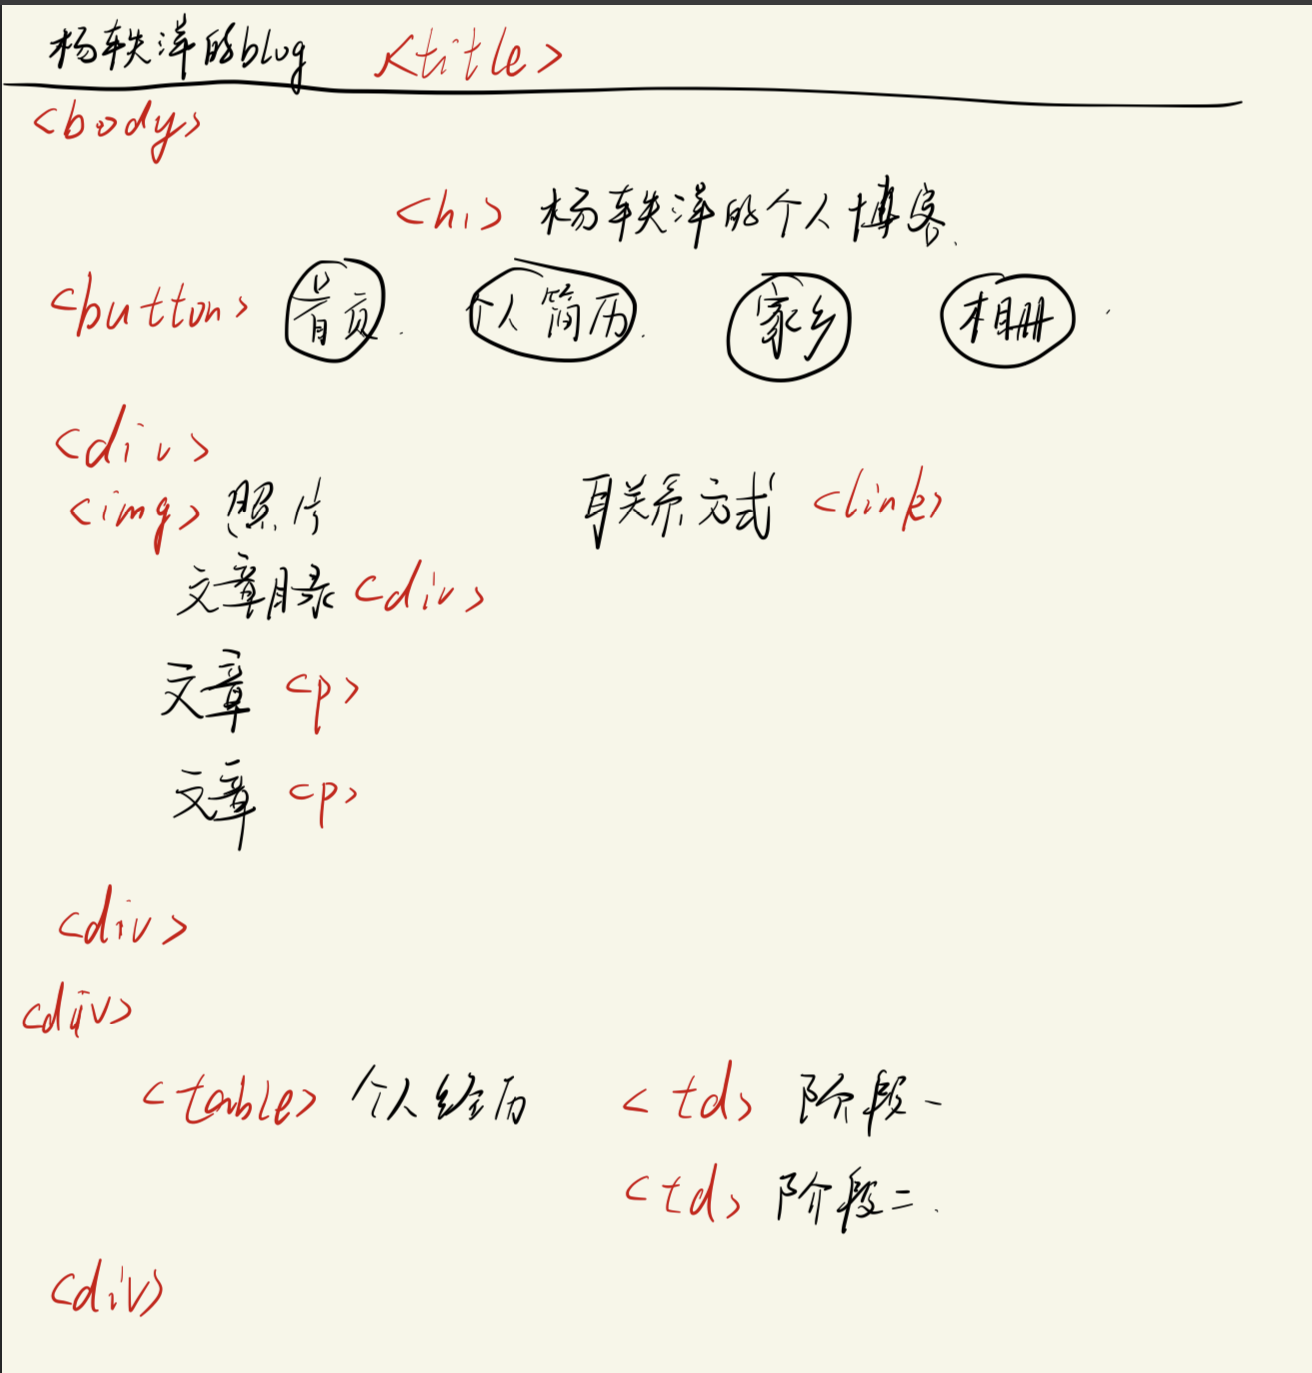 杨轶洋的blog <title>
<body>
<h1> 杨轶洋的个人博客.
<button> 首页 个人简历 家乡 相册
<div>
<img> 照片 联关系方式 <link>
文章目录 <div>
文章 <p>
文章 <p>
<div>
<div>
<table> 个人经历 <td> 阶段一
<td> 阶段二.
<div>